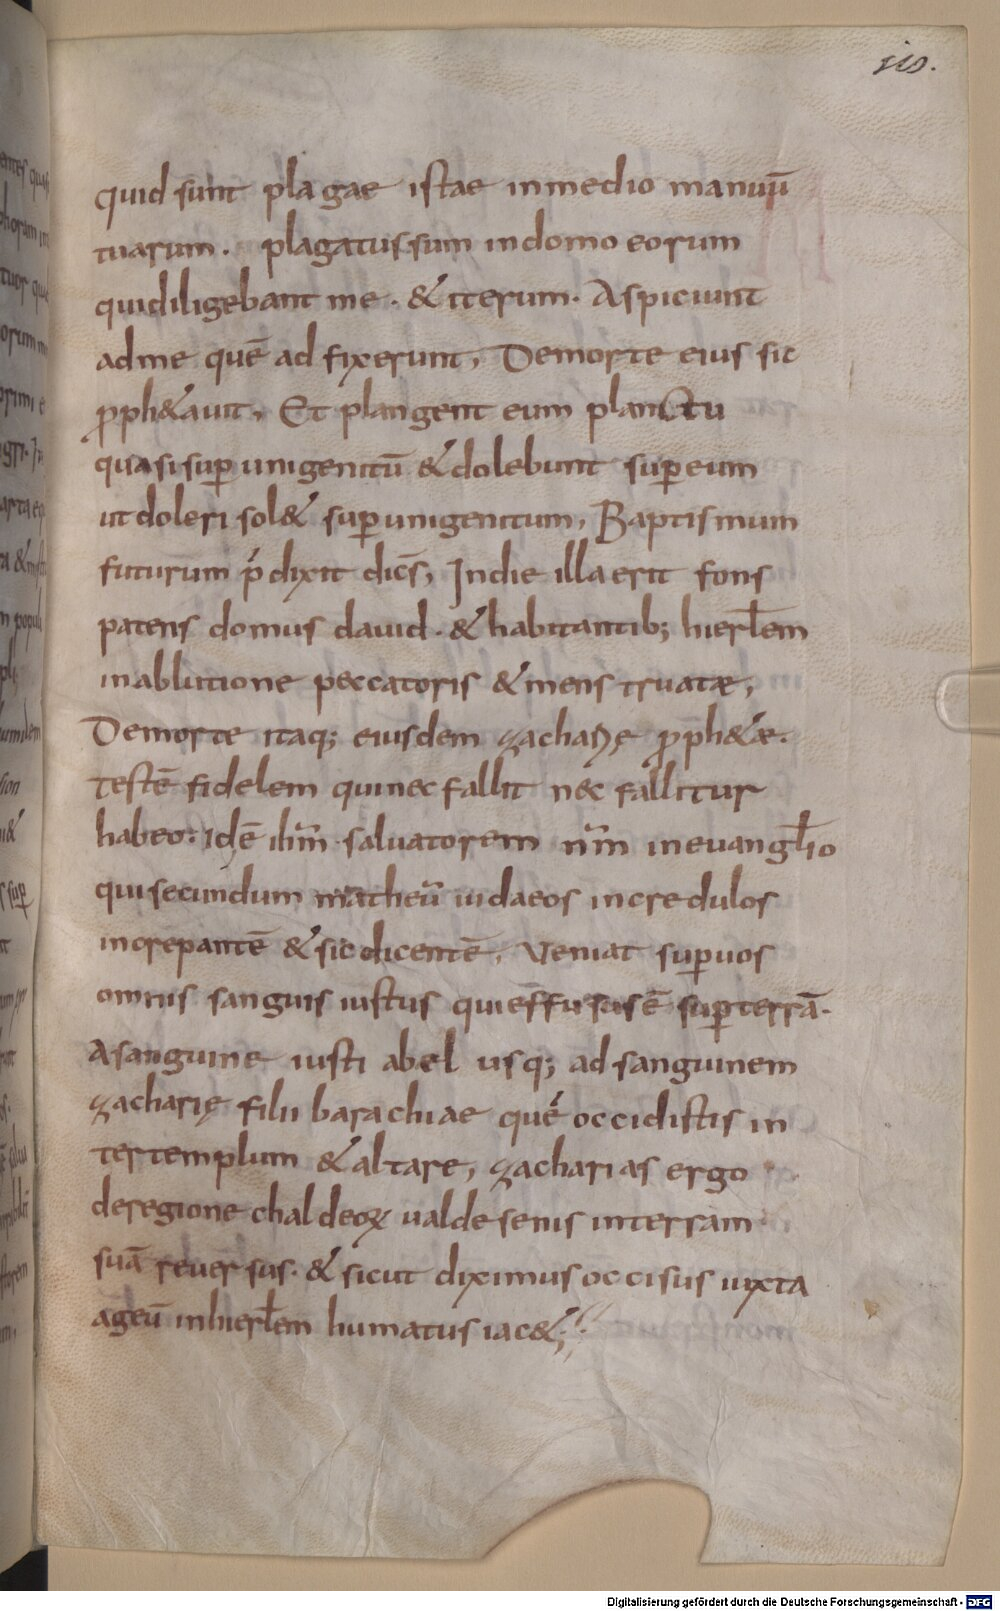 quid sunt plagae istae inmedio manuū
tuarum. plagatussum indomo eorum
quidiligebant me. & iterum. Aspiciunt
adme quē ad fixerunt, Demorte eius sic
ꝓph&auit, Et plangent eum planctu
quasisuꝑ unigenitū & dolebunt suꝑ eum
ut doleri sol& suꝑ unigenitum, Baptismum
futurum p̄dixit dicēs, Indie illa erit fons
patens domus dauid. & habitantib; hierl̄em
inablutione peccatoris & menstruatæ,
Demorte itaq; eiusdem zacharię ꝓph&æ.
testē fidelem quinec fallit nec fallitur
habeo: idē ihm̄ saluatorem nr̄m ineuangl̄io
qui secundum matheū iudaeos incredulos
increpantē & sic dicentē, Veniat suꝑ uos
omnis sanguis iustus qui effusus ē suꝑ terrā.
Asanguine iusti abel usq; ad sanguinem
zacharię filii barachiae quē occidistis in
tertemplum & altare, zacharias ergo
deregione chaldeoꝝ ualde senis interram
suā reuersus. & sicut diximus occisus iuxta
ageū inhierl̄em humatus iac&;
Digitalisierung gefördert durch die Deutsche Forschungsgemeinschaft - DFG